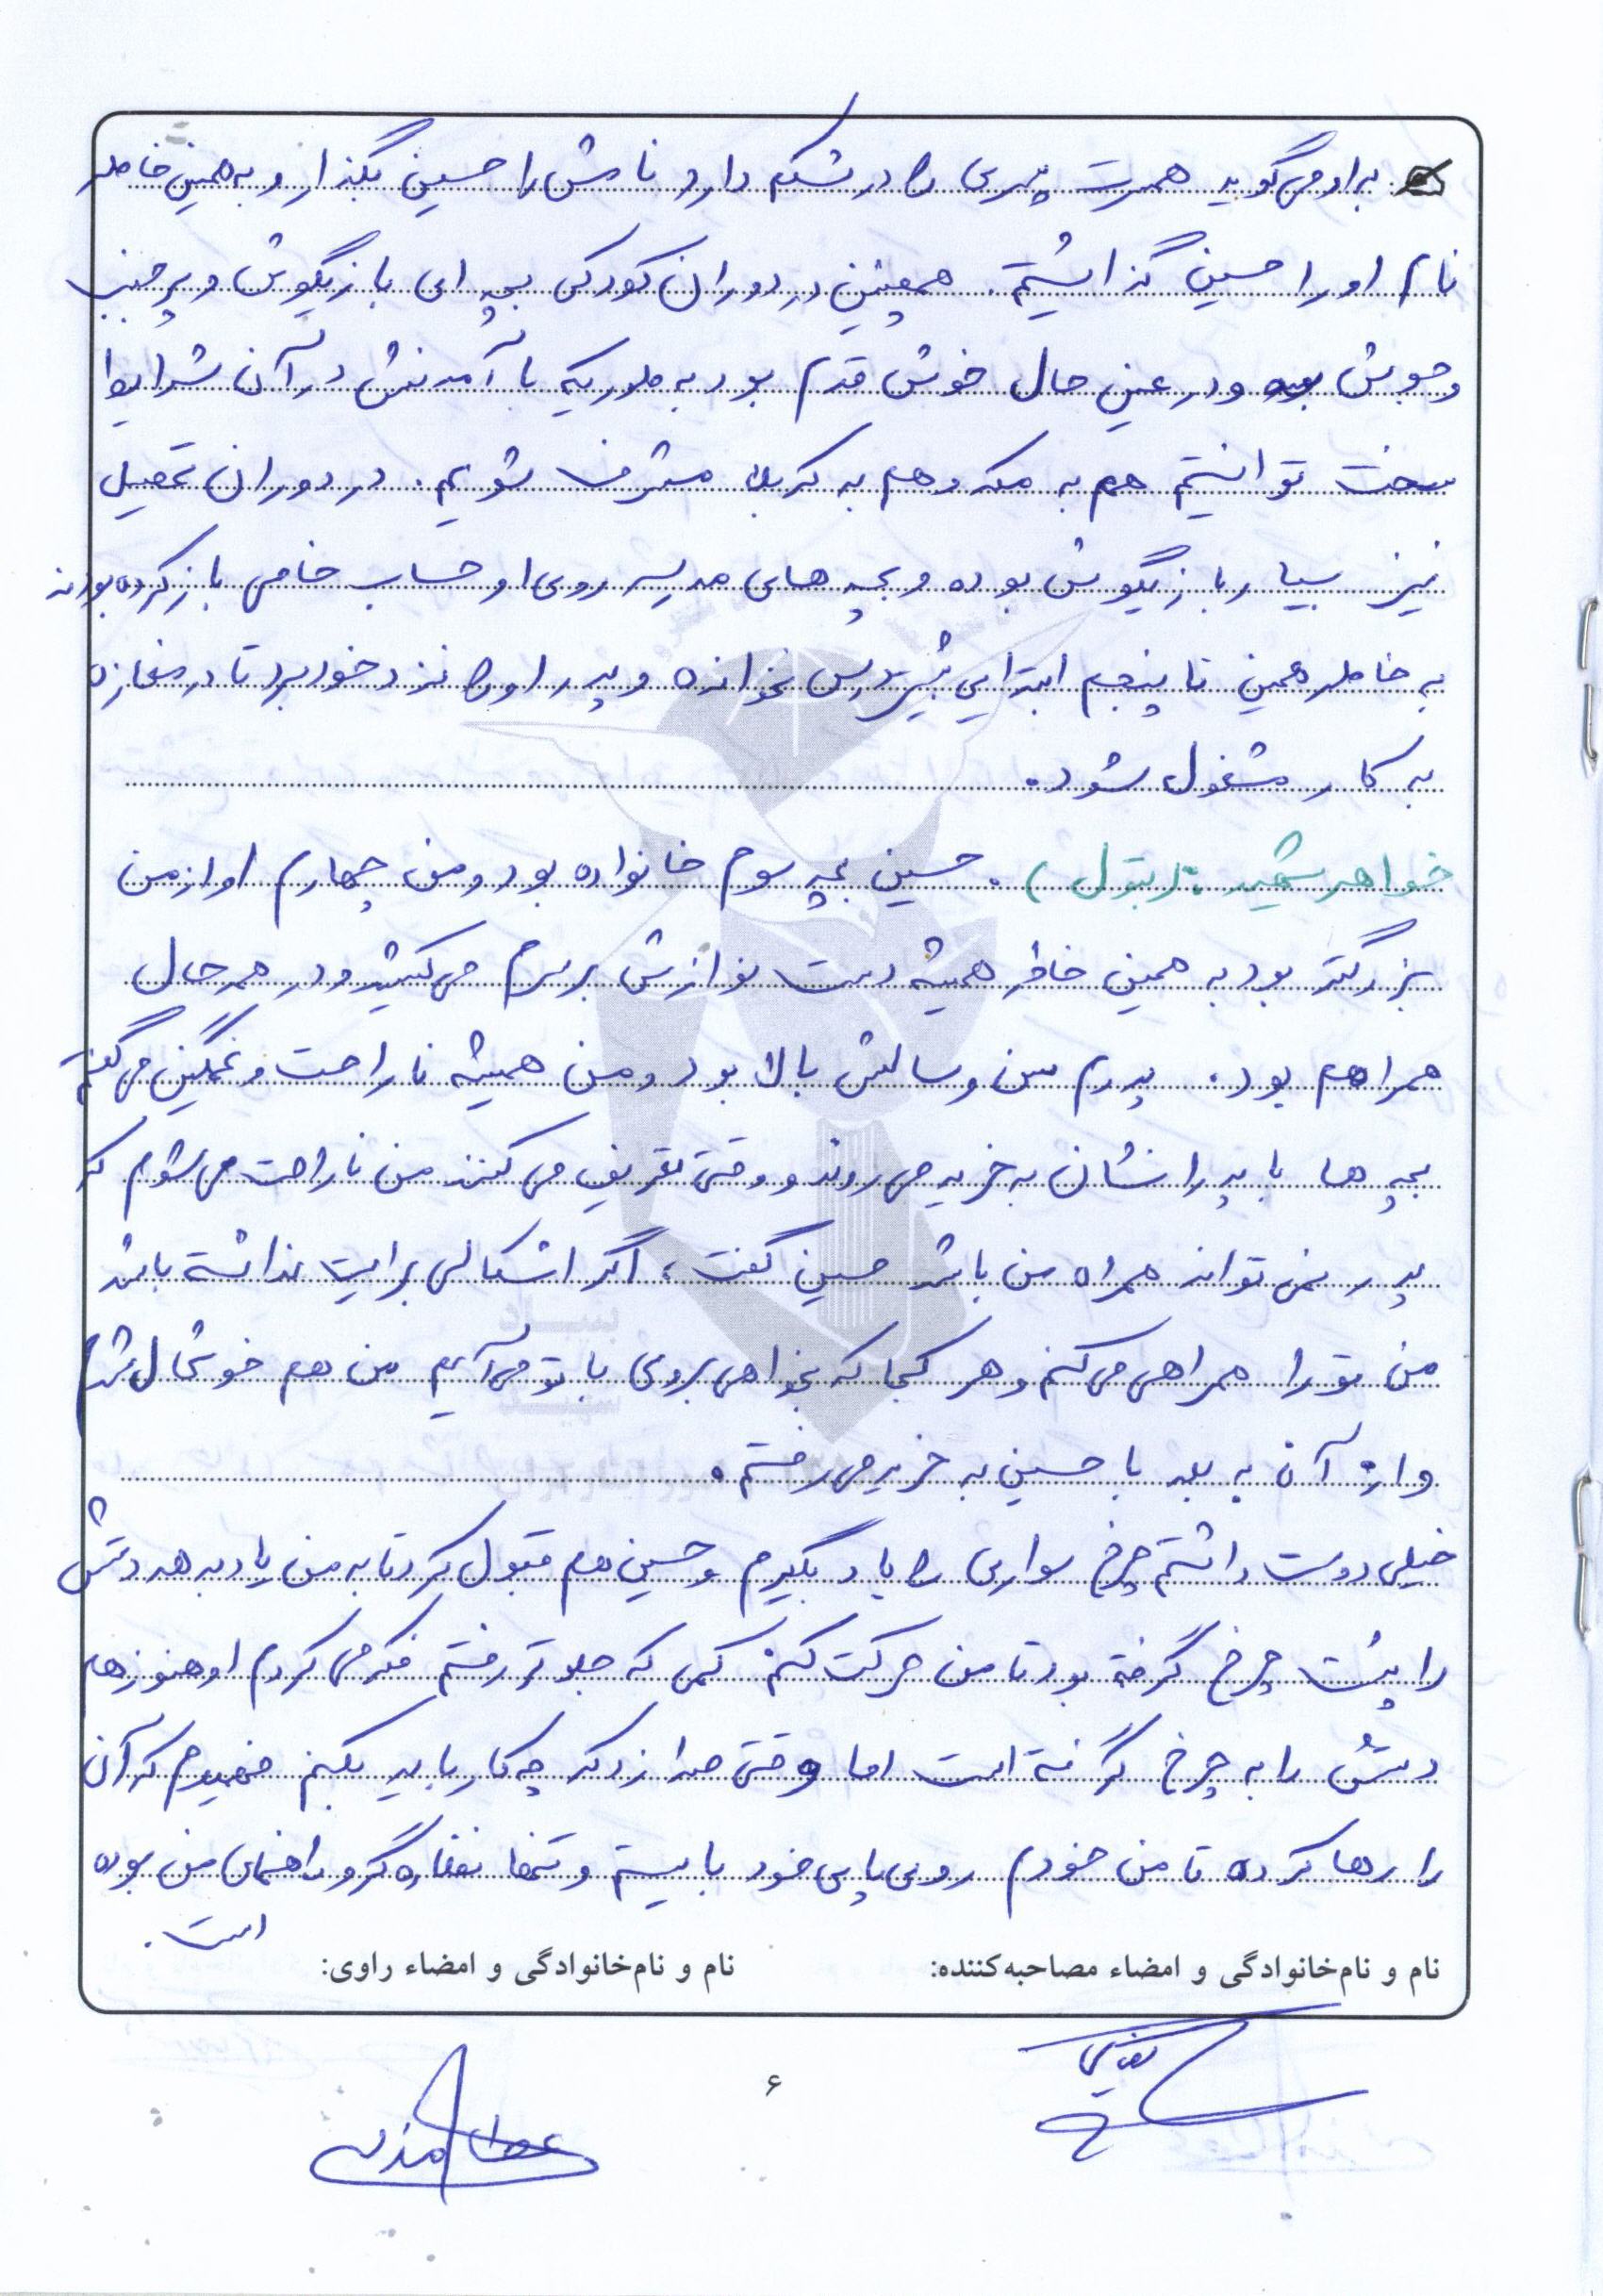 به او می‌گوید همسرت پسری را در شکم دارد نامش را حسین بگذار و به همین خاطر
نام او را حسین گذاشتیم. همچنین در دوران کودکی بچه ای بازیگوش و پر جنب
و جوش بوده و در عین حال خوش قدم بود به طوریکه با آمدنش در آن شرایط
سخت توانستیم هم به مکه و هم به کربلا مشرف شویم. در دوران تحصیل
نیز بسیار بازیگوش بوده و بچه های مدرسه روی او حساب خاصی باز کرده بودند
به خاطر همین تا پنجم ابتدایی بیشتر درس نخوانده و پدر او را نزد خود برد تا در مغازه
به کار مشغول شود.
خواهر شهید: (بتول). حسین بچه سوم خانواده بود و من چهارم او از من
بزرگتر بود به همین خاطر همیشه دست نوازش بر سرم می‌کشید و در هر حال
همراهم بود. پدرم سن و سالش بالا بود و من همیشه ناراحت و غمگین می‌گفتم
بچه ها با پدرانشان به خرید می‌روند و وقتی تعریف می‌کنند من ناراحت می‌شوم که
پدر نمی‌تواند همراه من باشد حسین گفت، اگر اشکالی برایت نداشته باشد
من تو را همراهی می‌کنم و هر کجا که بخواهی بروی با تو می‌آیم من هم خوشحال شدم
و از آن به بعد با حسین به خرید می‌رفتم.
خیلی دوست داشتم چرخ سواری را یاد بگیرم و حسین هم قبول کرد تا به من یاد بدهد دستش
را پشت چرخ گرفته بود تا من حرکت کنم کمی که جلوتر رفتم فکر می‌کردم او هنوز هم
دستش را به چرخ گرفته است اما وقتی صدا زد که چه کار باید بکنم فهمیدم که آن
را رها کرده تا من خودم روی پای خود بایستم و تنها نظاره گر و راهنمای من بوده
است.
نام و نام‌خانوادگی و امضاء مصاحبه‌کننده: نام و نام‌خانوادگی و امضاء راوی:
۶